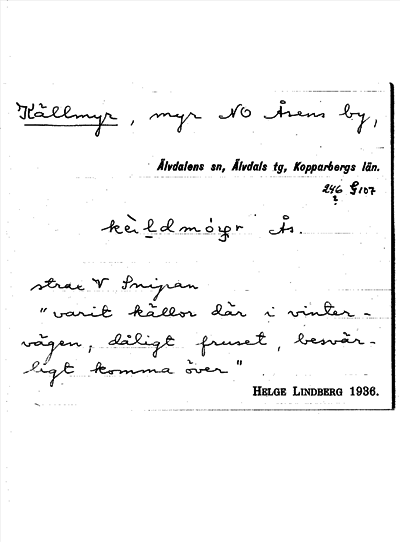 Källmyr, myr NO Åsens by,
Älvdalens sn, Älvdals tg, Kopparbergs län.
246 G 107
?
Ås.
strax V Snipan
"varit källor där i vinter-
vägen, dåligt fruset, besvär-
ligt komma över"
HELGE LINDBERG 1936.